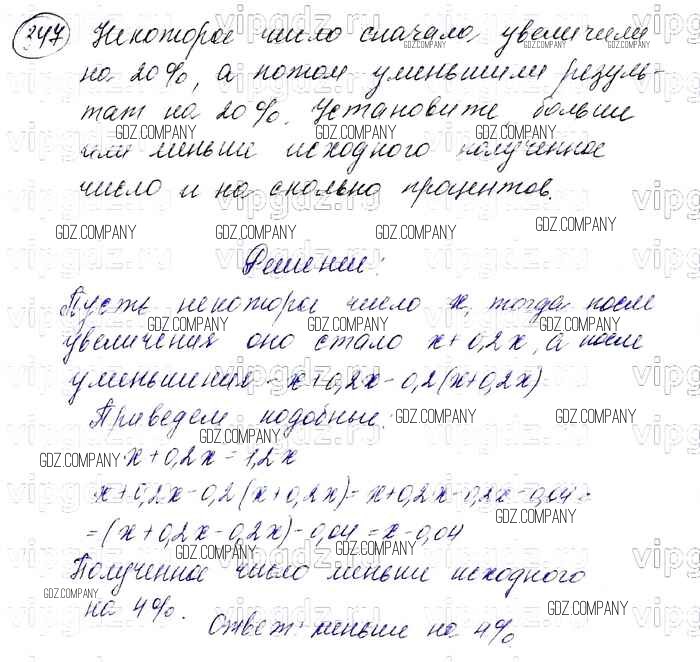 247 Некоторое число сначала увеличили
на 20%, а потом уменьшили резуль-
тат на 20%. Установите, больше
или меньше исходного полученное
число и на сколько процентов.
Решение:
Пусть некоторое число x, тогда после
увеличения оно стало x+0,2x, а после
уменьшения - x+0,2x-0,2(x+0,2x)
Приведем подобные:
x+0,2x=1,2x
x+0,2x-0,2(x+0,2x)=x+0,2x-0,2x-0,04=
=(x+0,2x-0,2x)-0,04=x-0,04
Полученное число меньше исходного
на 4%.
Ответ: меньше на 4%